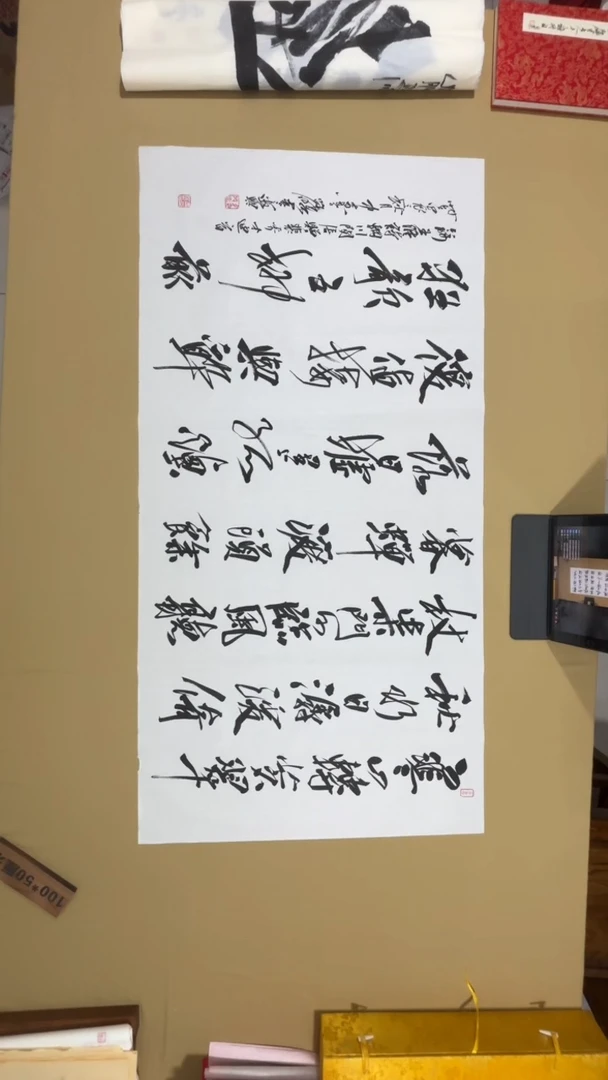 寒山轉蒼翠
秋水日潺湲倚
杖柴門外臨風聽
暮蟬渡頭餘
落日墟里上孤煙
復值接輿醉
狂歌五柳前
王維詩輞川閑居贈裴秀才迪
100*50